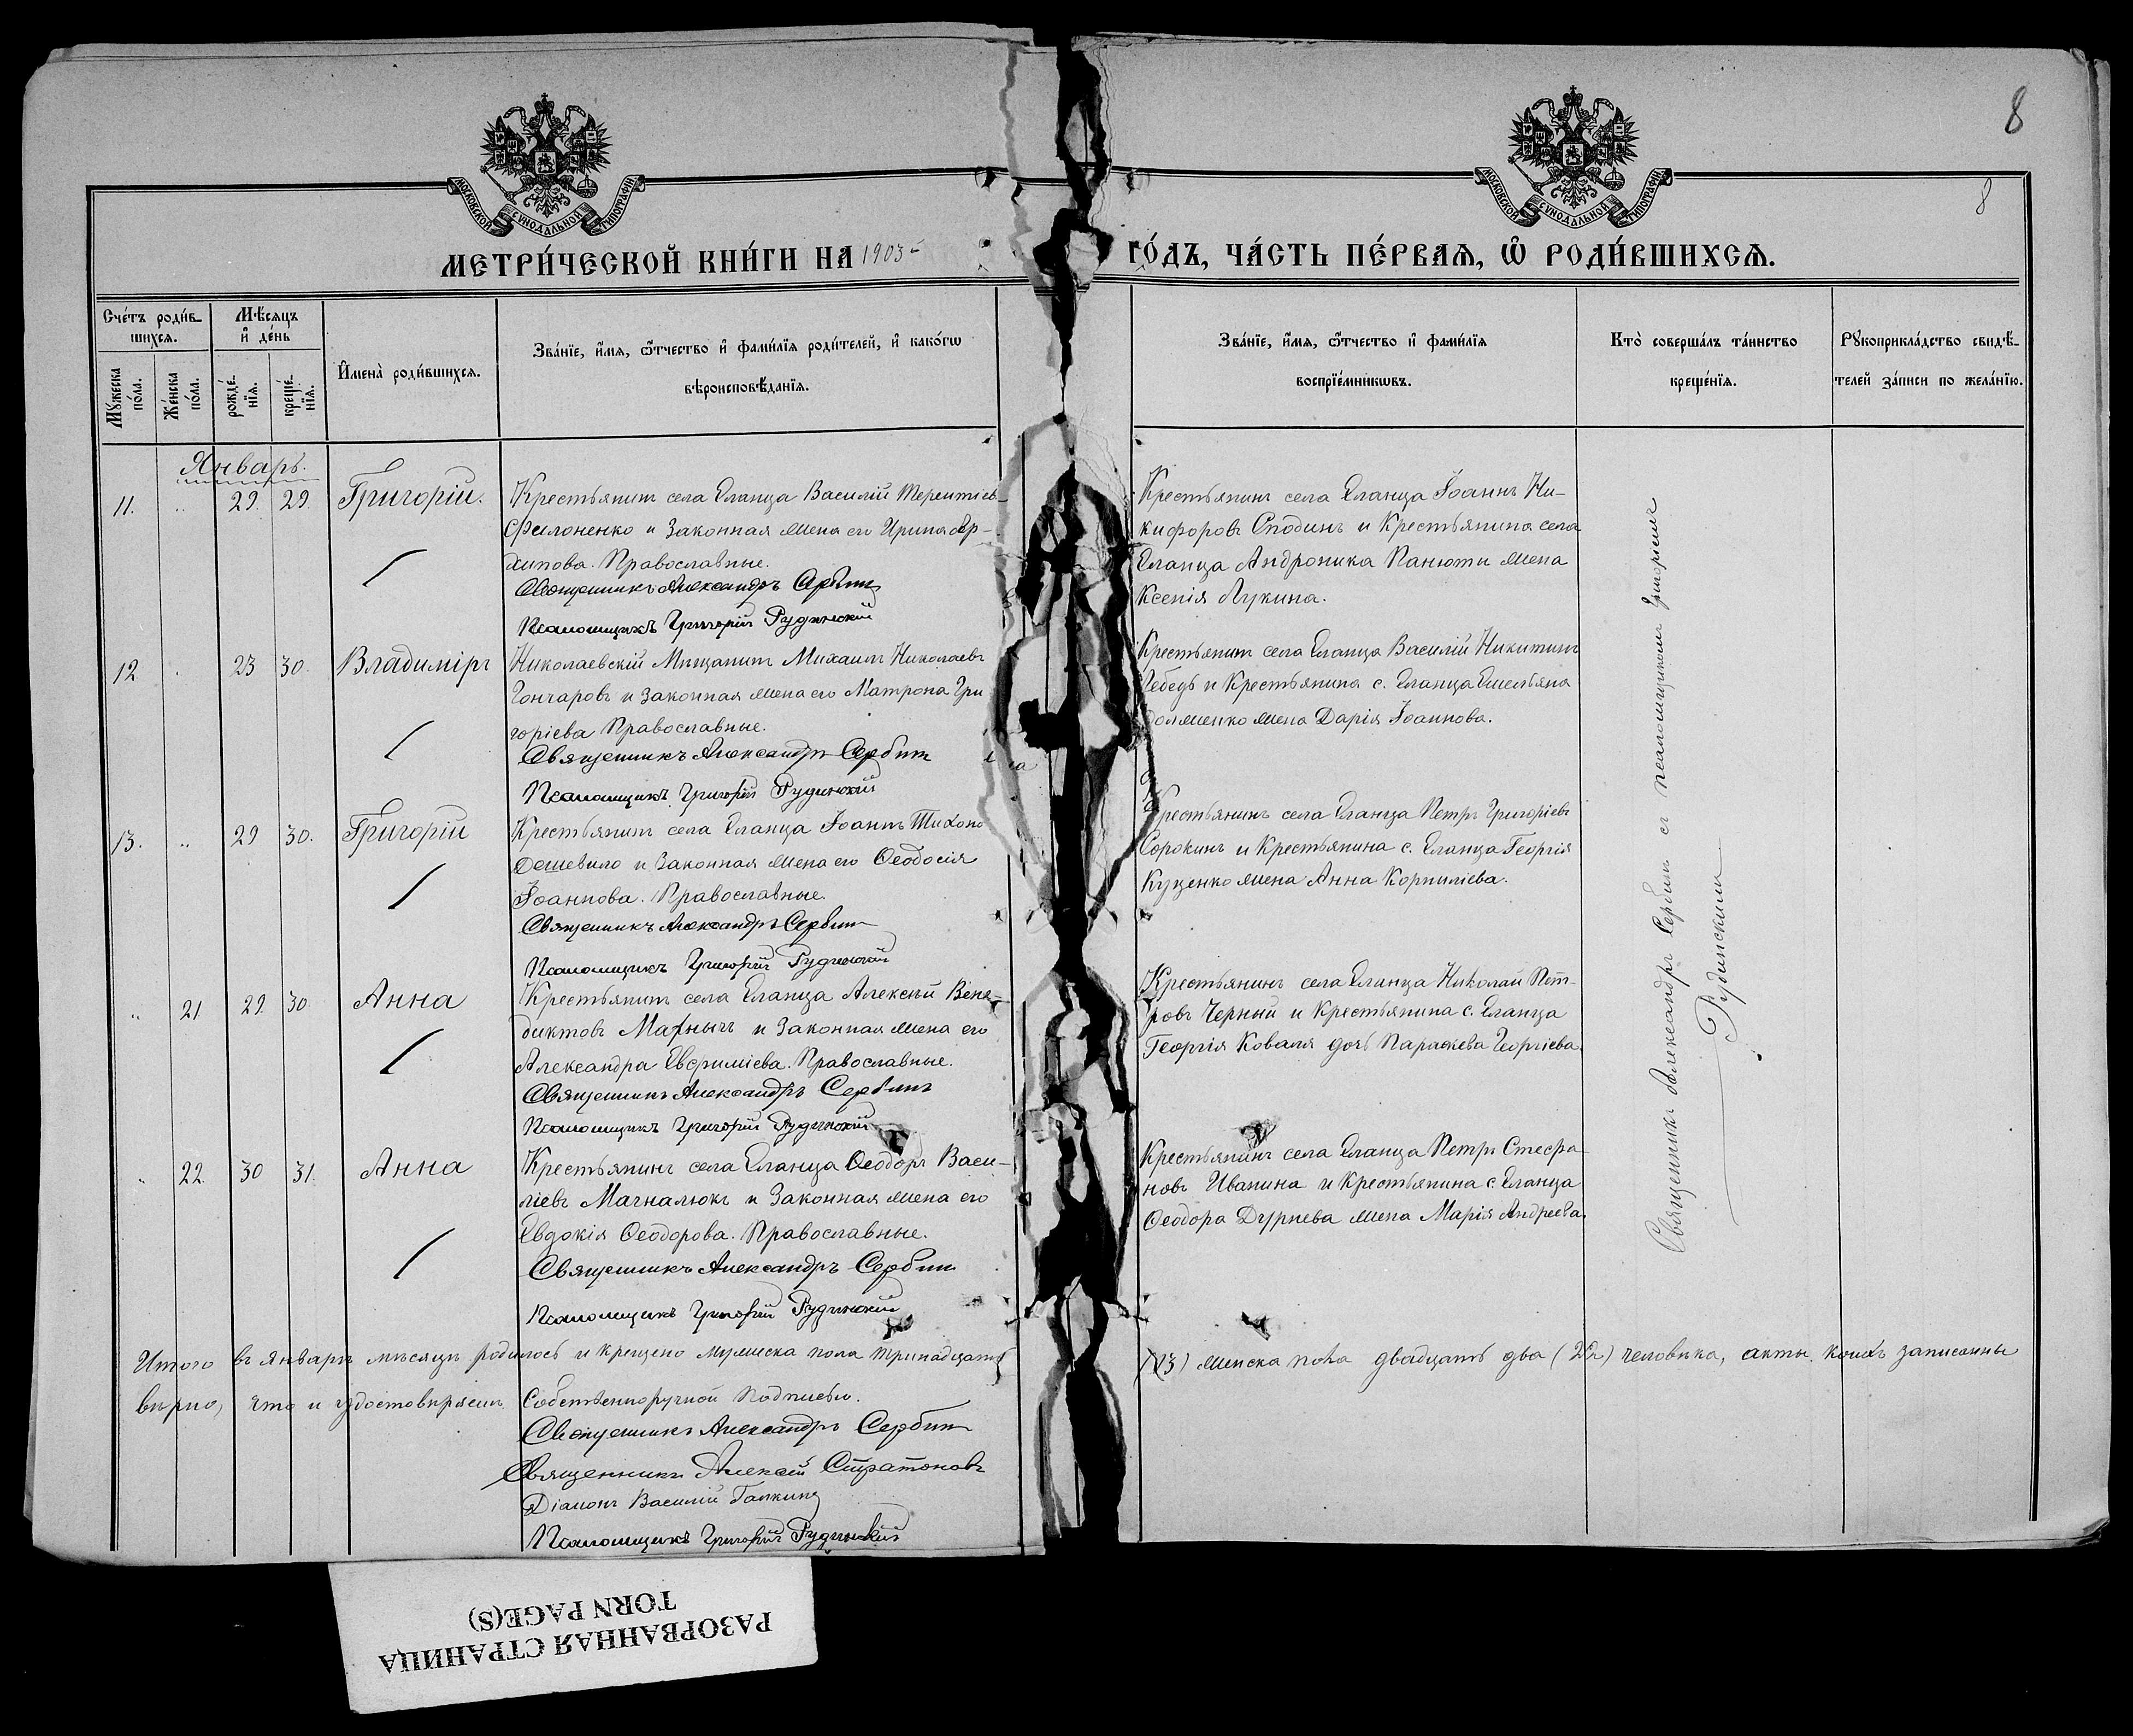 8
8
МОСКОВСКОЙ СѴНОДАЛЬНОЙ ТИПОГРАФІИ
МОСКОВСКОЙ СѴНОДАЛЬНОЙ ТИПОГРАФІИ
МЕТРИ́ЧЕСКОЙ КНИ́ГИ НА 1903 ГО́ДЪ, ЧА́СТЬ ПЕ́РВАѦ, Ѡ҆ РОДИ́ВШИХСѦ.
Сче́тъ роди́в-
шихсѧ.
Мꙋ́жеска по́ла.
Же́нска по́ла.
Мѣ́сѧцъ и҆ де́нь
рожде́-
нїѧ.
креще́-
нїѧ.
И҆мена̀ роди́вшихсѧ.
Зва́нїе, и҆́мѧ, ѻ҆́тчество и҆ фами́лїѧ роди́телей, и҆ како́гѡ
вѣроисповѣ́данїѧ.
Зва́нїе, и҆́мѧ, ѻ҆́тчество и҆ фами́лїѧ
воспрїе́мникѡвъ.
Кто̀ соверша́лъ та́инство
креще́нїѧ.
Рꙋкоприкла́дство свидѣ́-
телей за́писи по жела́нїю.
Январь.
11. " 29. 29. Григорій.
Крестьянинъ села Еланца Василій Терентіевъ
Филоненко и Законная жена его Ирина Ар-
хипова. Православные.
Священникъ Александръ Сербинъ
Псаломщикъ Григорій Рудинскій
Крестьянинъ села Еланца Іоаннъ Ни-
кифоровъ Сподинъ и Крестьянина села
Еланца Андроника Панюти жена
Ксенія Лукина.
12 " 23 30. Владиміръ
Николаевскій Мѣщанинъ Михаилъ Николаевъ
Гончаровъ и Законная жена его Матрона Гри
горіева Православные.
Священникъ Александръ Сербинъ
Псаломщикъ Григорій Рудинскій
Крестьянинъ села Еланца Василій Никитинъ
Лебедь и Крестьянина с. Еланца Емельяна
жена Дарія Іоаннова.
13. " 29 30. Григорій
Крестьянинъ села Еланца Іоаннъ Тихоно
Дешевило и Законная жена его Ѳеодосія
Іоаннова. Православные.
Священникъ Александръ Сербинъ
Псаломщикъ Григорій Рудинскій
Крестьянинъ села Еланца Петръ Григоріевъ
Сорокинъ и Крестьянина с. Еланца Георгія
Куценко жена Анна Корниліева.
" 21 29. 30. Анна
Крестьянинъ села Еланца Алексѣй Вене-
диктовъ и Законная жена его
Александра Евфиміева. Православные.
Священникъ Александръ Сербинъ
Псаломщикъ Григорій Рудинскій
Крестьянинъ села Еланца Николай Пет-
ровъ Черный и Крестьянина с. Еланца
Георгія Коваля дочь Параскева Георгіева.
" 22. 30 31. Анна
Крестьянинъ села Еланца Ѳеодоръ Васи-
ліевъ Магналюкъ и Законная жена его
Евдокія Ѳеодорова. Православные.
Священникъ Александръ Сербинъ
Псаломщикъ Григорій Рудинскій
Крестьянинъ села Еланца Петръ Стефа-
новъ Иванина и Крестьянина с. Еланца
Ѳеодора Дурнева жена Марія Андреева.
Священникъ Александръ Сербинъ съ псаломщикомъ Григоріемъ
Рудинскимъ
Итого въ Январѣ мѣсяцѣ родилось и крещено мужеска пола тринадцать (13) женска пола двадцать два (22) человѣка, акты коихъ записанны
вѣрно, что и удостовѣряемъ Собственноручной подписью.
Священникъ Александръ Сербинъ
Священникъ Алексѣй Стратоновъ
Діаконъ Василій Галкинъ
Псаломщикъ Григорій Рудинскій
РАЗОРВАННАЯ СТРАНИЦА
TORN PAGE(S)